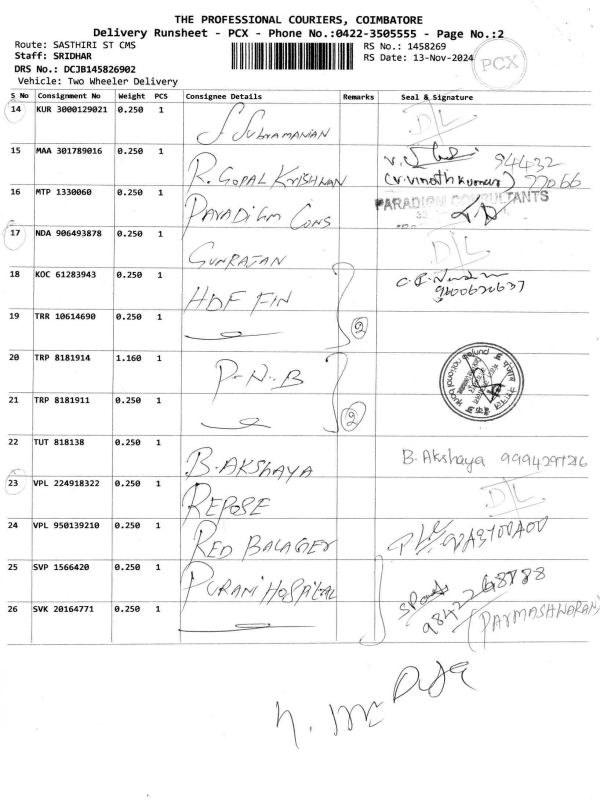 THE PROFESSIONAL COURIERS, COIMBATORE
Delivery Runsheet - PCX - Phone No.:0422-3505555 - Page No.:2
Route: SASTHIRI ST CMS RS No.: 1458269
Staff: SRIDHAR RS Date: 13-Nov-2024
PCX
DRS No.: DCJB145826902
Vehicle: Two Wheeler Delivery
S No Consignment No Weight PCS Consignee Details Remarks Seal & Signature
14 KUR 3000129021 0.250 1 S. Subramanian D/L
15 MAA 301789016 0.250 1 R. Gopal Krishnan 94432
(V. Vinoth Kumar) 77066
16 MTP 1330060 0.250 1 Paradigm Cons PARADIGM CONSULTANTS
17 NDA 906493878 0.250 1 Gunrajan D/L
18 KOC 61283943 0.250 1 HDF Fin 9600620637
19 TRR 10614690 0.250 1 2
20 TRP 8181914 1.160 1 P-N-B punjab national
21 TRP 8181911 0.250 1 2
22 TUT 818138 0.250 1 B. Akshaya B. Akshaya 9994297216
23 VPL 224918322 0.250 1 Repose D/L
24 VPL 950139210 0.250 1 Red Balager
25 SVP 1566420 0.250 1 Purani Hospital 9842268788
26 SVK 20164771 0.250 1 (PARMASHWARAN)